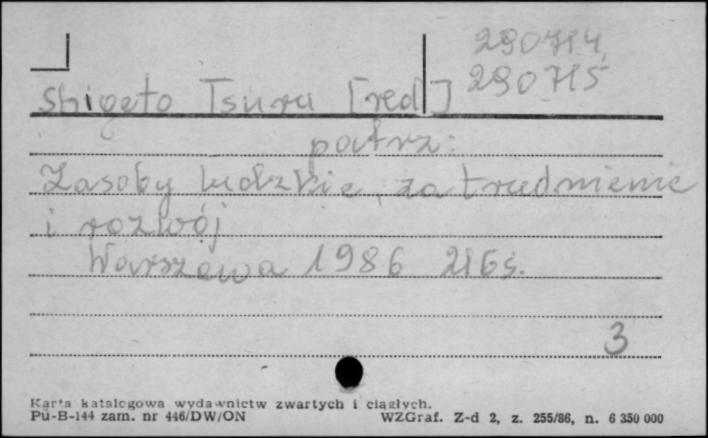 290714
290715
Shigeto Tsuru [red]
patrz:
Zasoby ludzkie, zatrudnienie
i rozwój
Warszawa 1986 216s.
3
Karta katalogowa wydawnictw zwartych i ciągłych.
Pu-B-144 zam. nr 446/DW/ON WZGraf. Z-d 2, z. 255/86, n. 6 350 000